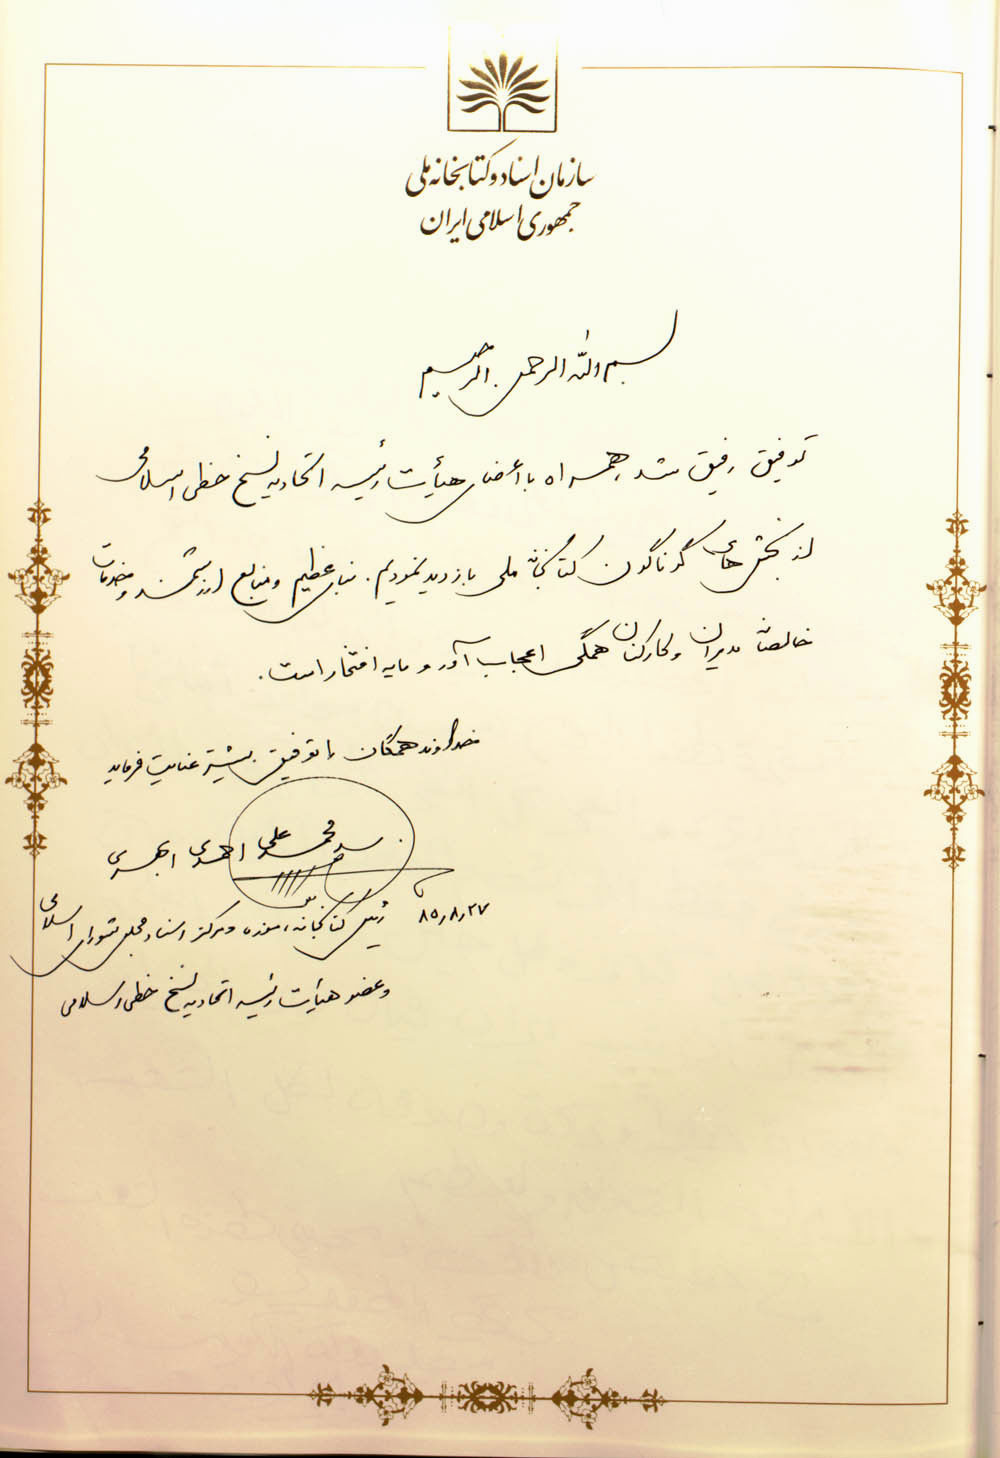 سازمان اسناد و کتابخانه ملی
جمهوری اسلامی ایران
بسم الله الرحمن الرحیم
توفیق رفیق شد همراه با اعضای هیأت رئیسه اتحادیه نسخ خطی اسلامی
از بخش‌های گوناگون کتابخانه ملی بازدید نمودیم. بنای عظیم و منابع ارزشمند و خدمات
خالصانه مدیران و کارکنان همگی اعجاب آور و مایه افتخار است.
خداوند همگان را توفیق بیشتر عنایت فرماید
سید محمد علی احمدی ابهری
۸۵٫۸٫۲۷
رئیس کتابخانه، موزه و مرکز اسناد مجلس شورای اسلامی
و عضو هیأت رئیسه اتحادیه نسخ خطی اسلامی